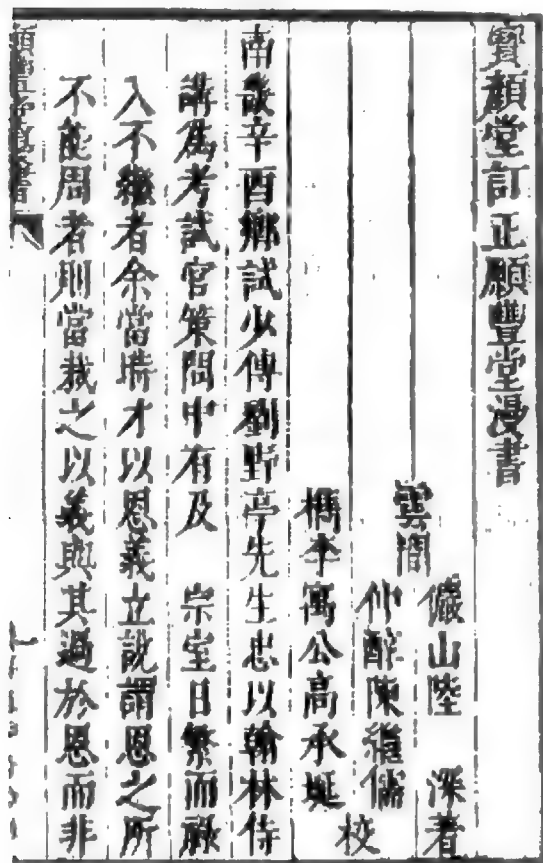 寶顏堂訂正願豐堂漫書
雲間
儼山陸 深著
仲醇陳繼儒
檇李寓公高承埏 校
南畿辛酉鄉試少傅劉野亭先生忠以翰林侍
講爲考試官策問中有及 宗室日繁而祿
入不繼者余當塲才以恩義立說謂恩之所
不能周者則當裁之以義與其過於恩而非